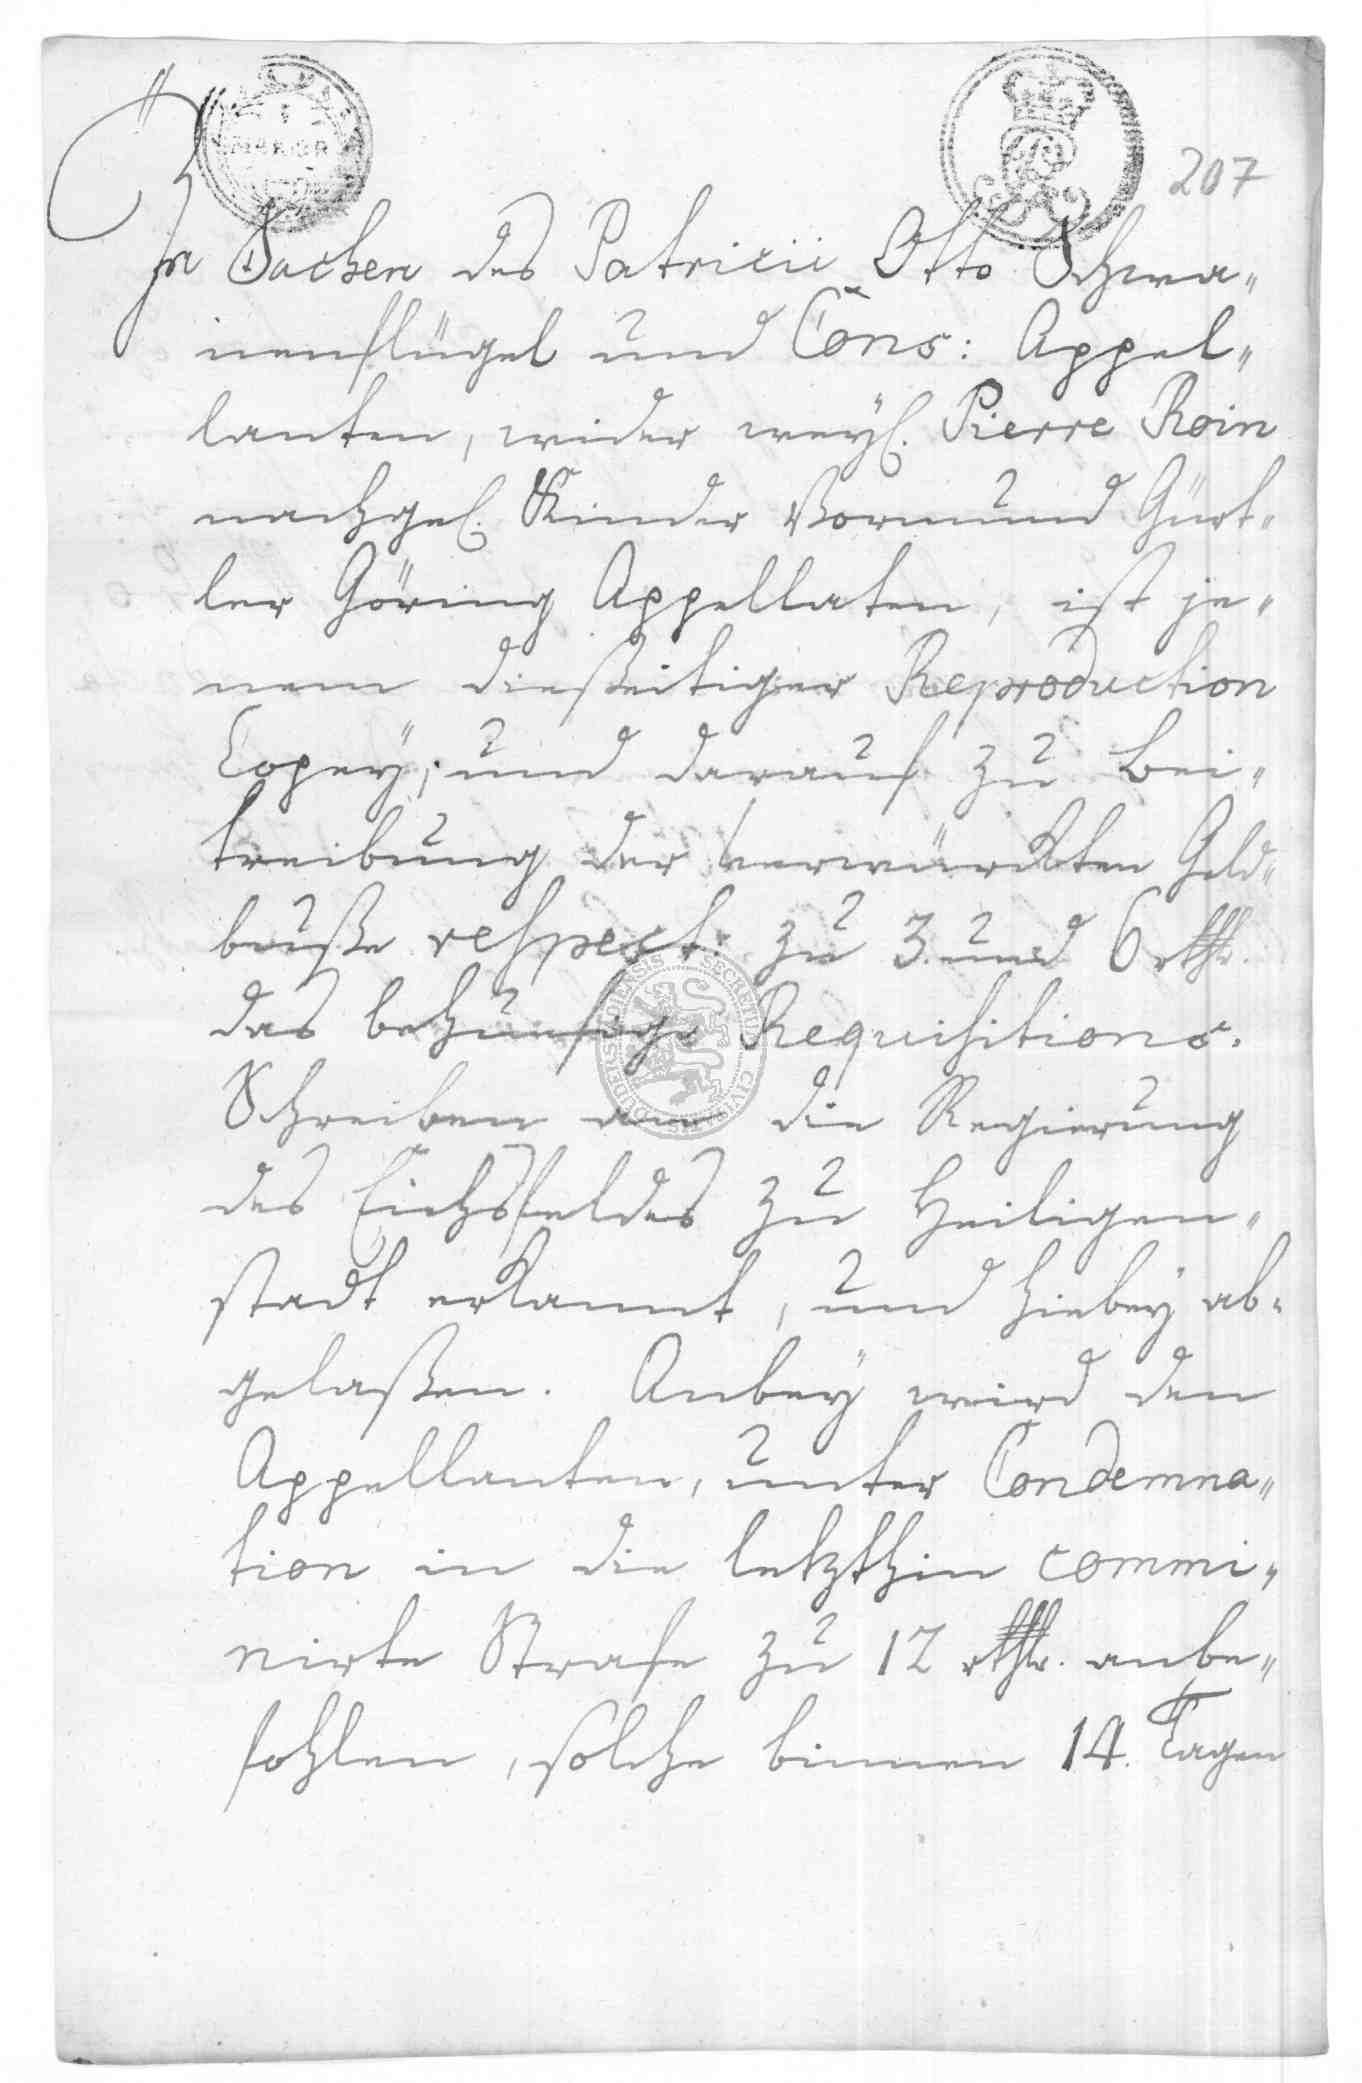 207
In Sachen des Patricii Otto Schwa„
nenflügel und Cons: Appel„
lanten, wider weyl. Pierre Roin
nachgel. Kinder Vormund Gürt„
ler Göring Appellaten, ist je„
nem dießeitiger Reproduction
Copey; und darauf zu Bei„
treibung der verwürckten Geld„
buße respect: zu 3. und 6 rthlr.
das behuefige Requisitions.
Schreiben an die Regierung
des Eichsfeldes zu Heiligen„
stadt erkannt, und hiebey ab„
gelaßen. Anbey wird den
Appellanten, unter Condemna„
tion in die letzthin commi„
nirte Strafe zu 12 rthlr. anbe„
fohlen, solche binnen 14. Tagen